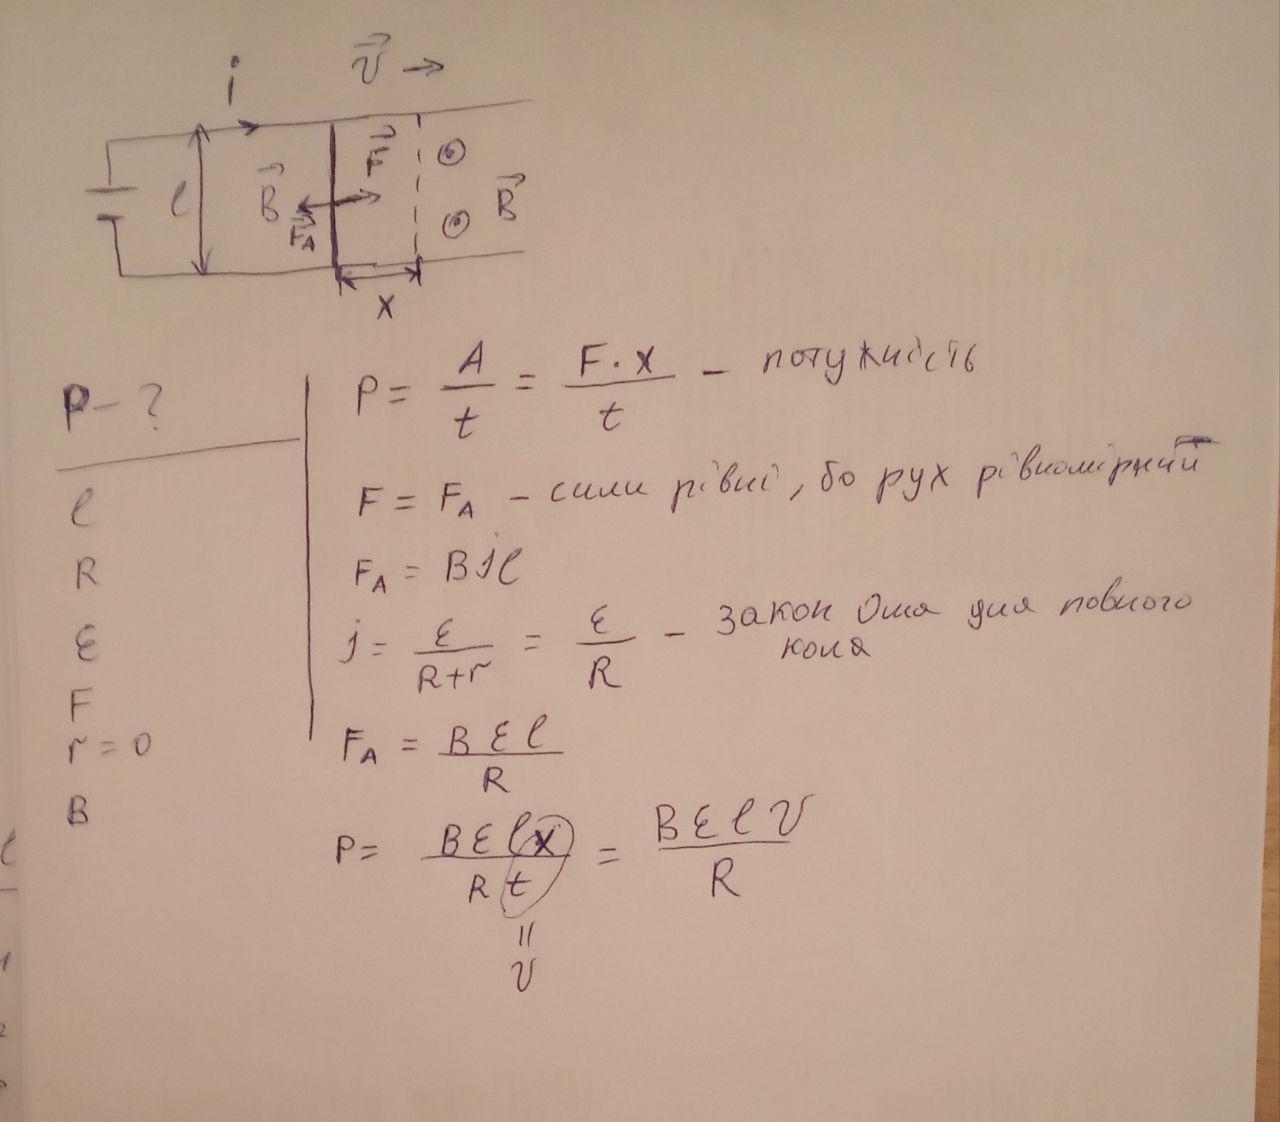 i
v⃗ →
l
B⃗
F⃗
F⃗A
B⃗
x
P - ?
l
R
ℰ
F
r = 0
B
P = A/t = F·x/t – потужність
F = FA – сили рівні, бо рух рівномірний
FA = Bil
i = ℰ/(R+r) = ℰ/R – закон Ома для повного
кола
FA = Bℰl/R
P = Bℰlx/Rt = Bℰlv/R
||
v